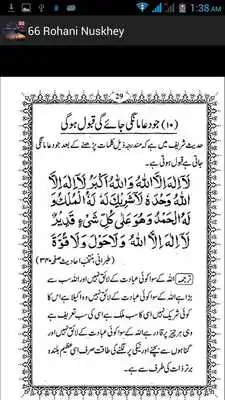 1:38 AM
66 Rohani Nuskhey
29
(۱۰) جو دعا مانگی جائے گی قبول ہوگی
حدیث شریف میں ہے کہ مندرجہ ذیل کلمات پڑھنے کے بعد جو دعا مانگی
جاتی ہے قبول ہوتی ہے۔
لَآ اِلٰهَ اِلَّا اللهُ وَاللهُ اَكْبَرُ لَآ اِلٰهَ اِلَّا
اللهُ وَحْدَهٗ لَا شَرِيْكَ لَهٗ لَهُ الْمُلْكُ وَ
لَهُ الْحَمْدُ وَهُوَ عَلٰى كُلِّ شَىْءٍ قَدِيْرٌ
لَآ اِلٰهَ اِلَّا اللهُ وَلَا حَوْلَ وَلَا قُوَّةَ
(طبرانی، منتخب احادیث صفحہ ۳۴۰)
ترجمہ اللہ کے سوا کوئی عبادت کے لائق نہیں اور اللہ سب سے
بڑا ہے اللہ کے سوا کوئی عبادت کے لائق نہیں وہ اکیلا ہے اس کا
کوئی شریک نہیں اسی کا سب ملک ہے اسی کی سب تعریف ہے
وہی ہر چیز پر قادر ہے اللہ کے سوا کوئی عبادت کے لائق نہیں اور
گناہوں سے بچنے اور نیکی پر لگنے کی طاقت صرف اسی عظیم بلند و
برتر ذات کی طرف سے ہے۔